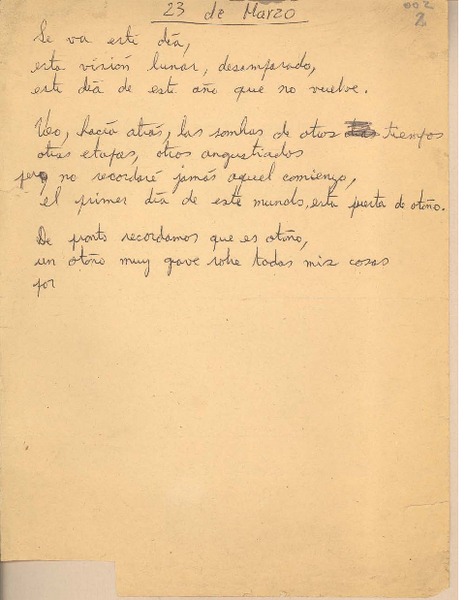 23 de Marzo
002
2
Se va este día,
esta visión lunar, desamparado,
este día de este año que no vuelve.
Veo, hacia atrás, las sombras de otros días tiempos
otras etapas, otros angustiados
pero no recordaré jamás aquel comienzo,
el primer día de este mundo, esta puerta de otoño.
De pronto recordamos que es otoño,
un otoño muy grave sobre todas mis cosas
por